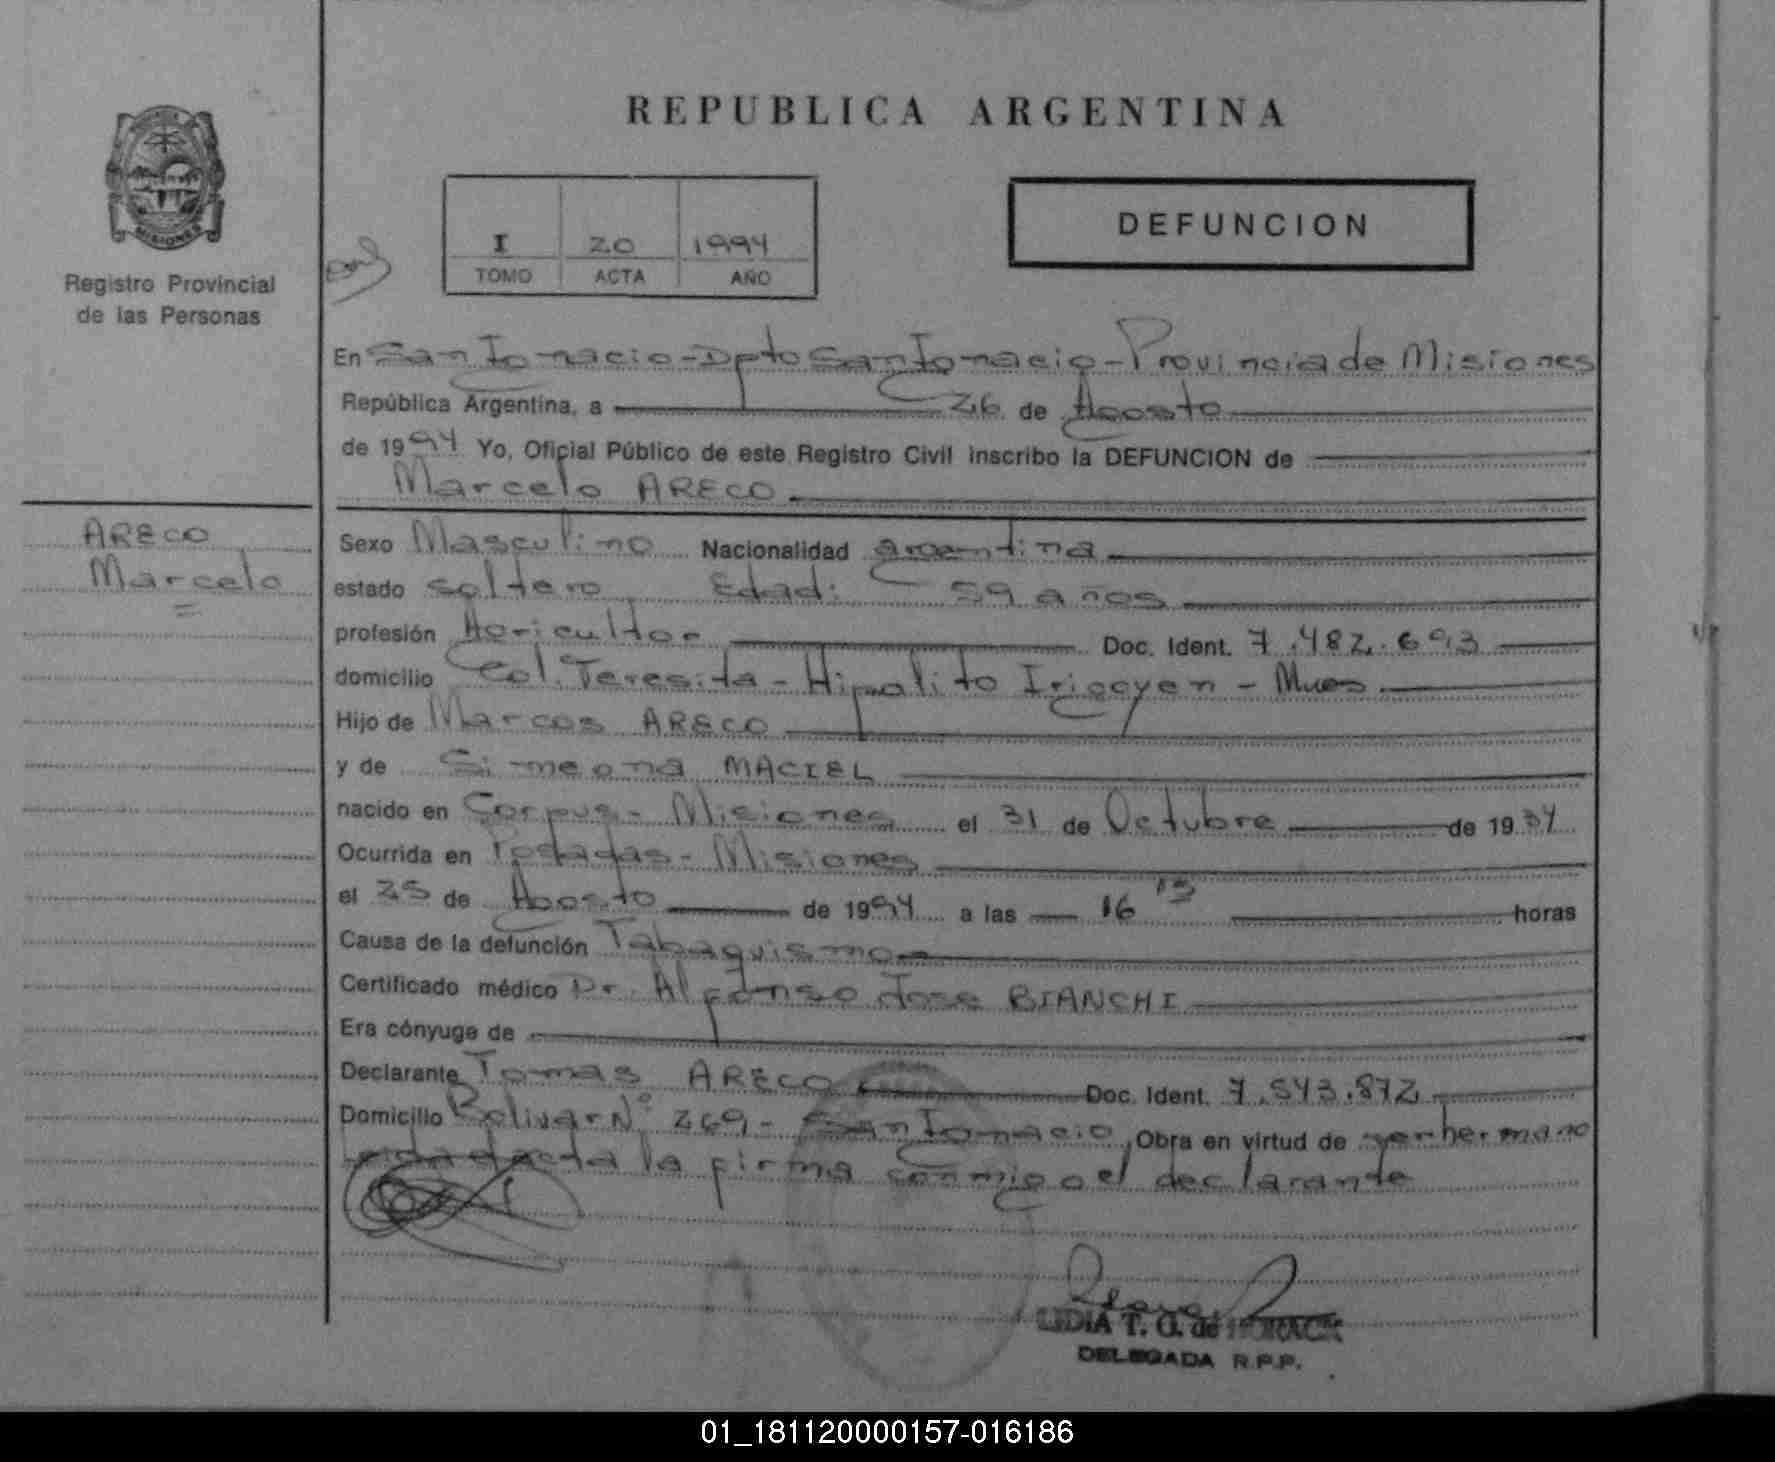 REPUBLICA ARGENTINA
MISIONES
Registro Provincial
de las Personas
I 20 1994
TOMO ACTA AÑO
DEFUNCION
En San Ignacio - Dpto San Ignacio - Provincia de Misiones
República Argentina, a 26 de Agosto
de 1994 Yo, Oficial Público de este Registro Civil inscribo la DEFUNCION de
Marcelo ARECO
ARECO
Marcelo
Sexo Masculino Nacionalidad argentina
estado soltero Edad: 59 años
profesión Agricultor Doc. Ident. 7.482.693
domicilio Col. Teresita - Hipolito Irigoyen - Mnes
Hijo de Marcos ARECO
y de Simeona MACIEL
nacido en Corpus - Misiones el 31 de Octubre de 1934
Ocurrida en Posadas - Misiones
el 25 de Agosto de 1994 a las 16 15 horas
Causa de la defunción Tabaquismo
Certificado médico Dr. Alfonso Jose BIANCHI
Era cónyuge de
Declarante Tomas ARECO Doc. Ident. 7.543.872
Domicilio Bolivar Nº 269 - San Ignacio, Obra en virtud de ser hermano
Leida el acta la firma conmigo el declarante
LIDIA T. O. de HORACK
DELEGADA R.P.P.
01_181120000157-016186